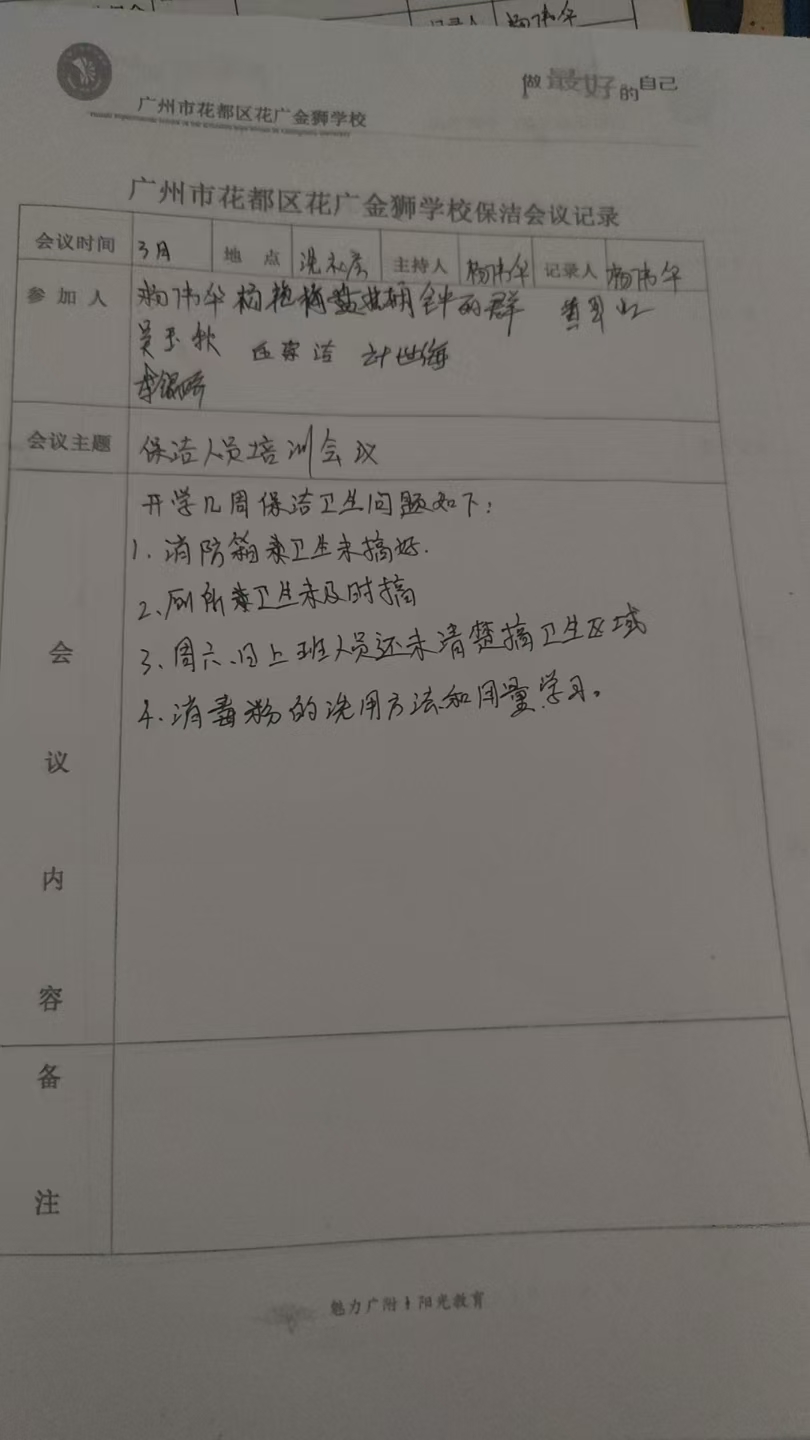 记录人 杨伟华
做最好的自己
广州市花都区花广金狮学校
广州市花都区花广金狮学校保洁会议记录
会议时间 3月 地点 洗衣房 主持人 杨伟华 记录人 杨伟华
参加人 杨伟华 杨艳梅 钟丽群
吴玉秋 计世海
会议主题 保洁人员培训会议
会议内容
开学几周保洁卫生问题如下:
1. 消防箱卫生未搞好.
2、厕所卫生未及时搞
3、周六、日上班人员还未清楚搞卫生区域
4. 消毒粉的使用方法和用量学习。
备注
魅力广附 阳光教育